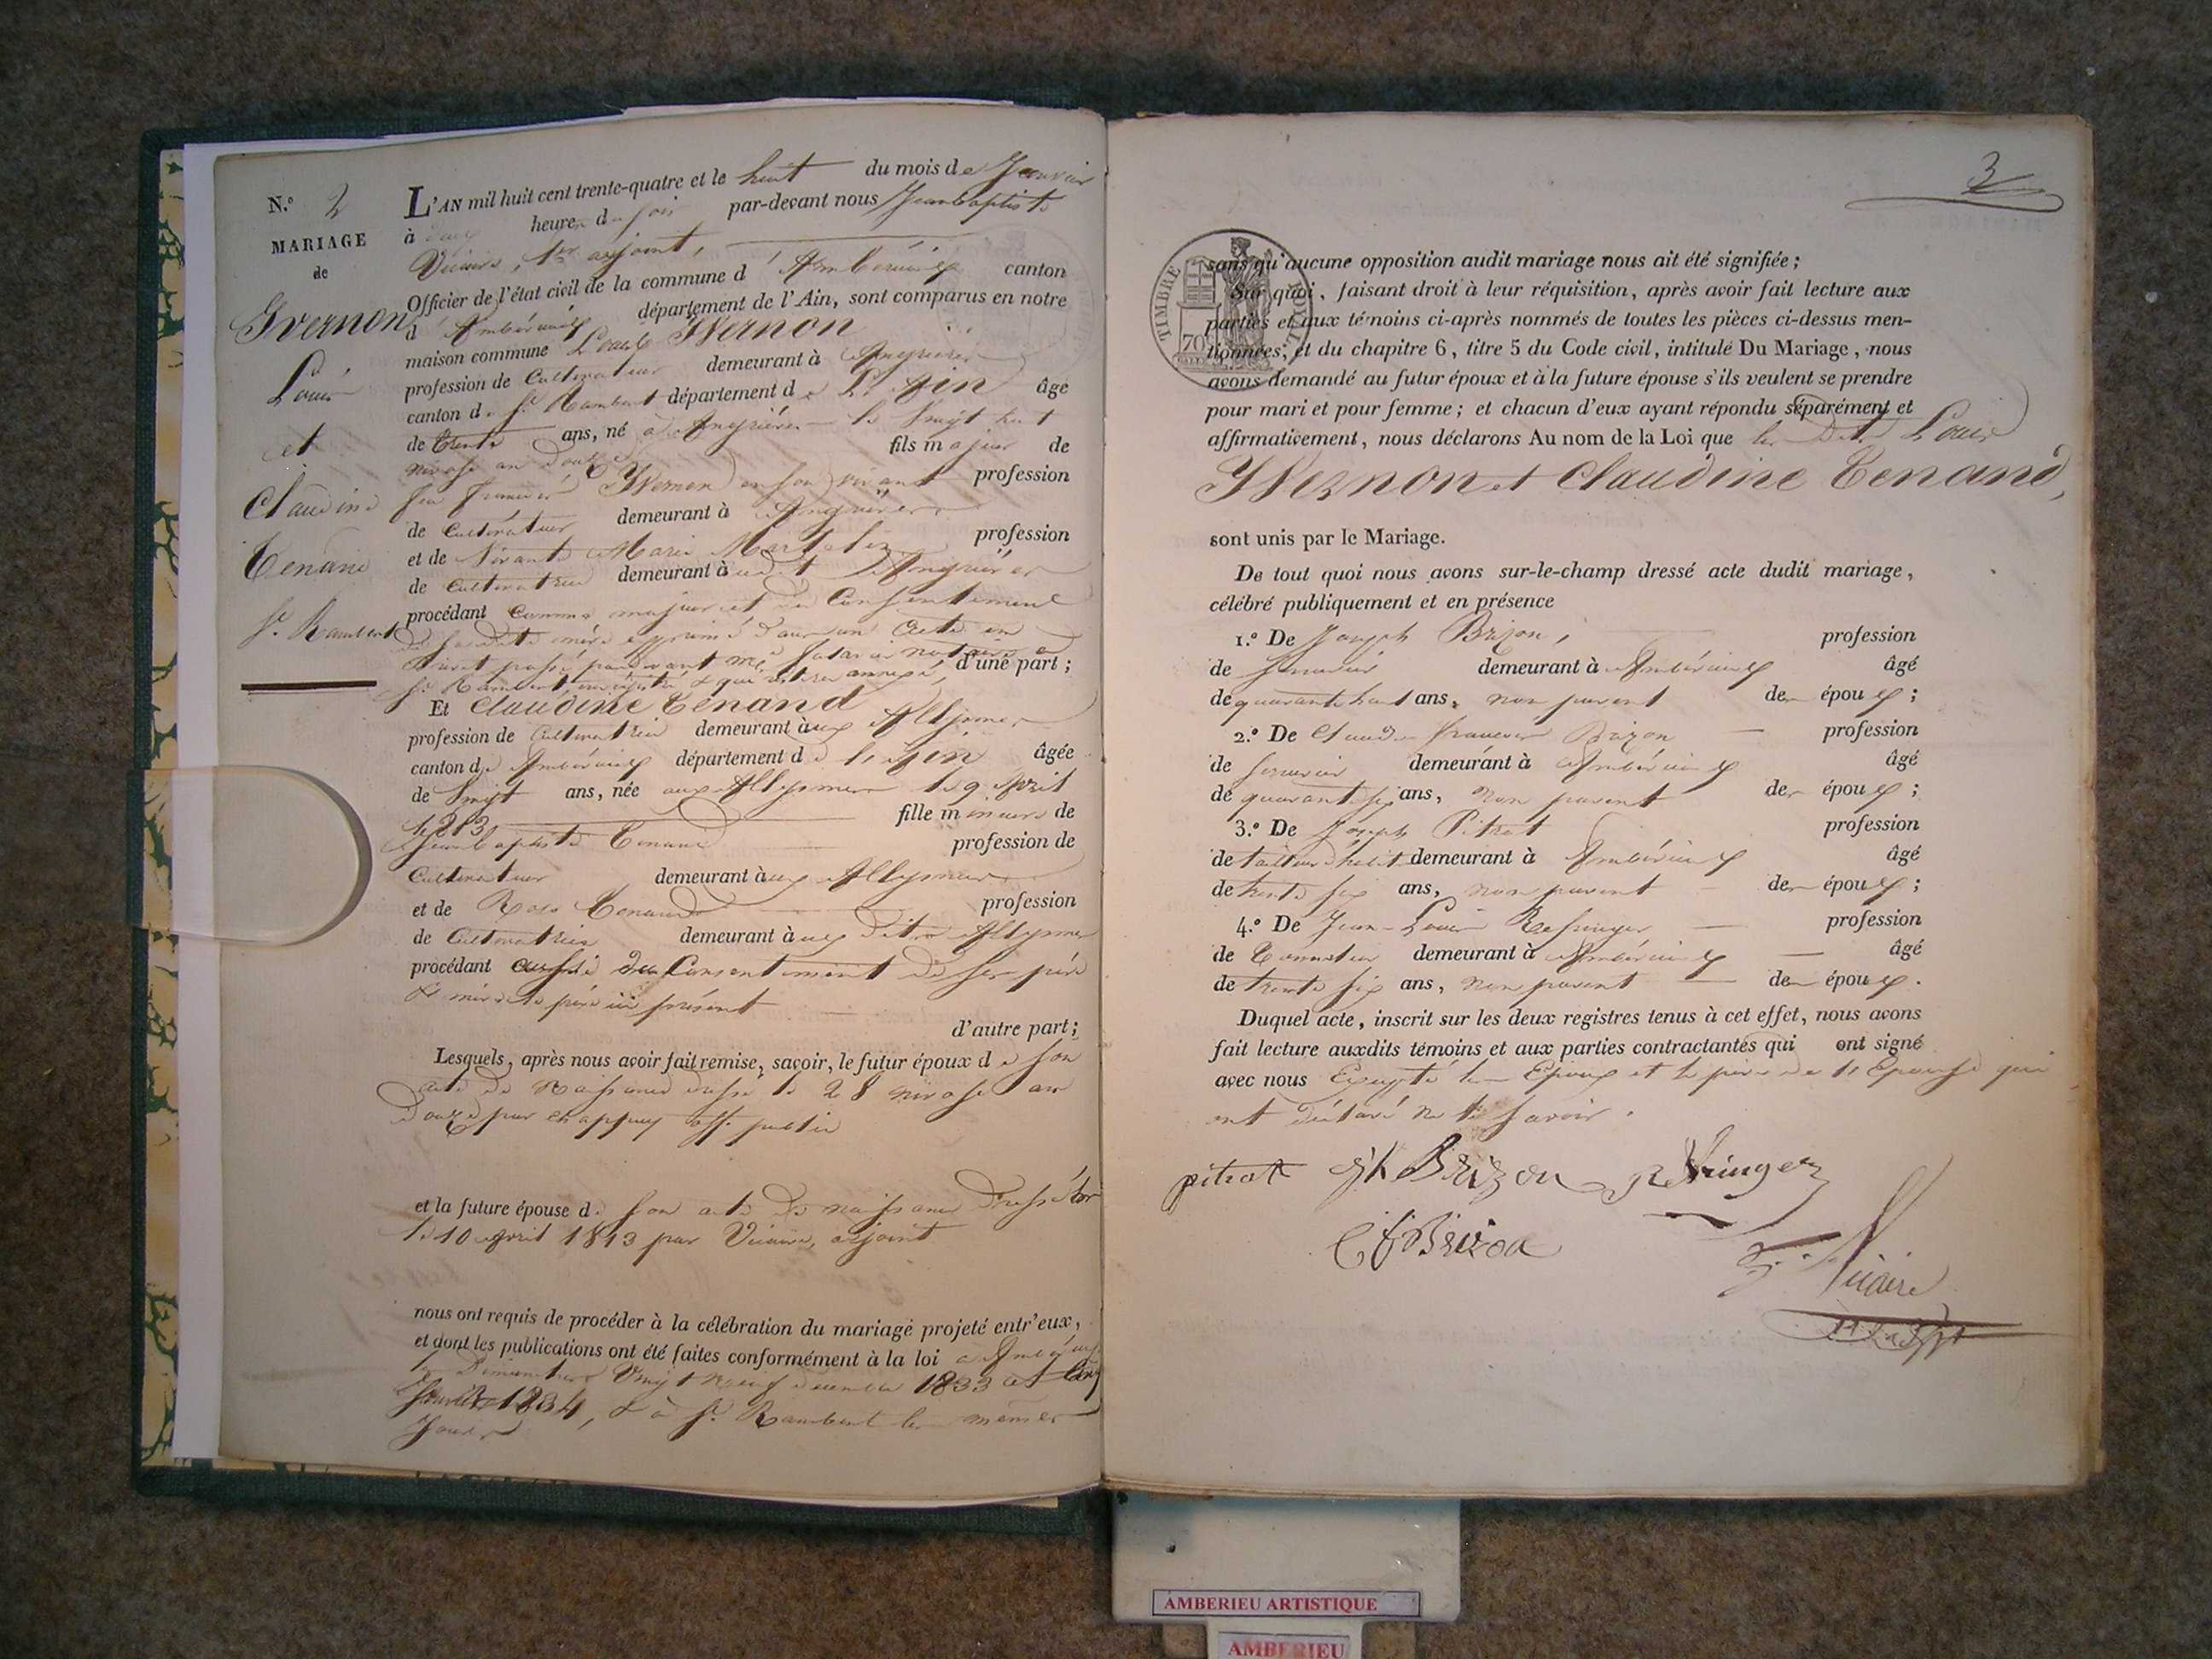 N.o 2
MARIAGE
de
Yvernon
Louis
et
Claudine
Tenand
St. Rambert
L'AN mil huit cent trente-quatre et le huit du mois de Janvier
à heures du soir par-devant nous Jean Baptiste
Vicaire, 1er adjoint,
Officier de l'état civil de la commune d'Ambérieux canton
d'Ambérieux département de l'Ain, sont comparus en notre
maison commune Louis Yvernon
profession de Cultivateur demeurant à
canton de St Rambert département de L'Ain âgé
de trente ans, né à le vingt huit
nivose an douze fils majeur de
feu François Yvernon en son vivant profession
de Cultivateur demeurant à
et de vivante Marie profession
de Cultivatrice demeurant à
procédant Comme majeur et du Consentement
de sa dite mère exprimé dans un acte en
brevet passé pardevant me notaire à
St. Rambert, enregistré & qui restera annexé, d'une part;
Et Claudine Tenand
profession de Cultivatrice demeurant aux Allymes
canton d'Ambérieux département de l'Ain âgée
de vingt ans, née aux Allymes le 9 Avril
1813 fille mineure de
Jean Baptiste Tenand profession de
Cultivateur demeurant aux Allymes
et de Rose Tenand profession
de Cultivatrice demeurant aux dits Allymes
procédant du Consentement de ses père
& mère le père ici présent
d'autre part;
Lesquels, après nous avoir fait remise, savoir, le futur époux de son
acte de Naissance dressé le 28 nivose an
douze par Chappuy off. public
et la future épouse de son acte de naissance dressé
le 10 avril 1813 par Vicaire, adjoint
nous ont requis de procéder à la célébration du mariage projeté entr'eux,
et dont les publications ont été faites conformément à la loi à Ambérieux
les Dimanches Vingt neuf décembre 1833 et cinq
Janvier 1834, & à St. Rambert les mêmes
Jours
3
TIMBRE ROYAL
70
sans qu'aucune opposition audit mariage nous ait été signifiée;
Sur quoi, faisant droit à leur réquisition, après avoir fait lecture aux
parties et aux témoins ci-après nommés de toutes les pièces ci-dessus men-
tionnées, et du chapitre 6, titre 5 du Code civil, intitulé Du Mariage, nous
avons demandé au futur époux et à la future épouse s'ils veulent se prendre
pour mari et pour femme; et chacun d'eux ayant répondu séparément et
affirmativement, nous déclarons Au nom de la Loi que les Dits Louis
Yvernon et Claudine Tenand,
sont unis par le Mariage.
De tout quoi nous avons sur-le-champ dressé acte dudit mariage,
célébré publiquement et en présence
1.o De Joseph Brizon, profession
de Serrurier demeurant à Ambérieux âgé
de quarante huit ans, non parent des époux;
2.o De Claude François Brizon profession
de serrurier demeurant à Ambérieux âgé
de quarante six ans, non parent des époux;
3.o De Joseph Pitrat profession
de tailleur d'habit demeurant à Ambérieux âgé
de trente six ans, non parent des époux;
4.o De Jean-Louis Refringer profession
de demeurant à Ambérieux âgé
de trente six ans, non parent des époux.
Duquel acte, inscrit sur les deux registres tenus à cet effet, nous avons
fait lecture auxdits témoins et aux parties contractantes qui ont signé
avec nous Excepté les Epoux et le père de l'Epouse qui
ont déclaré ne le savoir.
pitrat Jh Brizon Refringer
C f Brizon
Vicaire
AMBERIEU ARTISTIQUE
AMBERIEU